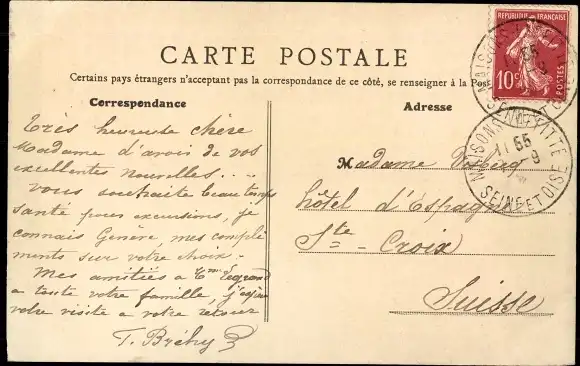 CARTE POSTALE
Certains pays étrangers n'acceptant pas la correspondance de ce côté, se renseigner à la Post
Correspondance
Très heureuse chère
Madame d'avoir de vos
excellentes nouvelles....
Vous souhaite beau temps
santé pour excursions, je
connais Genève, mes compli
ments sur votre choix.
Mes amitiés à
a toute votre famille
votre visite a votre retour
T. Bréhy
Adresse
Madame
hôtel d'Espagne
Ste - Croix
Suisse
REPUBLIQUE FRANÇAISE
10c
POSTES
MAISONS-LAFFITTE
11 55
9
SEINE ET OISE